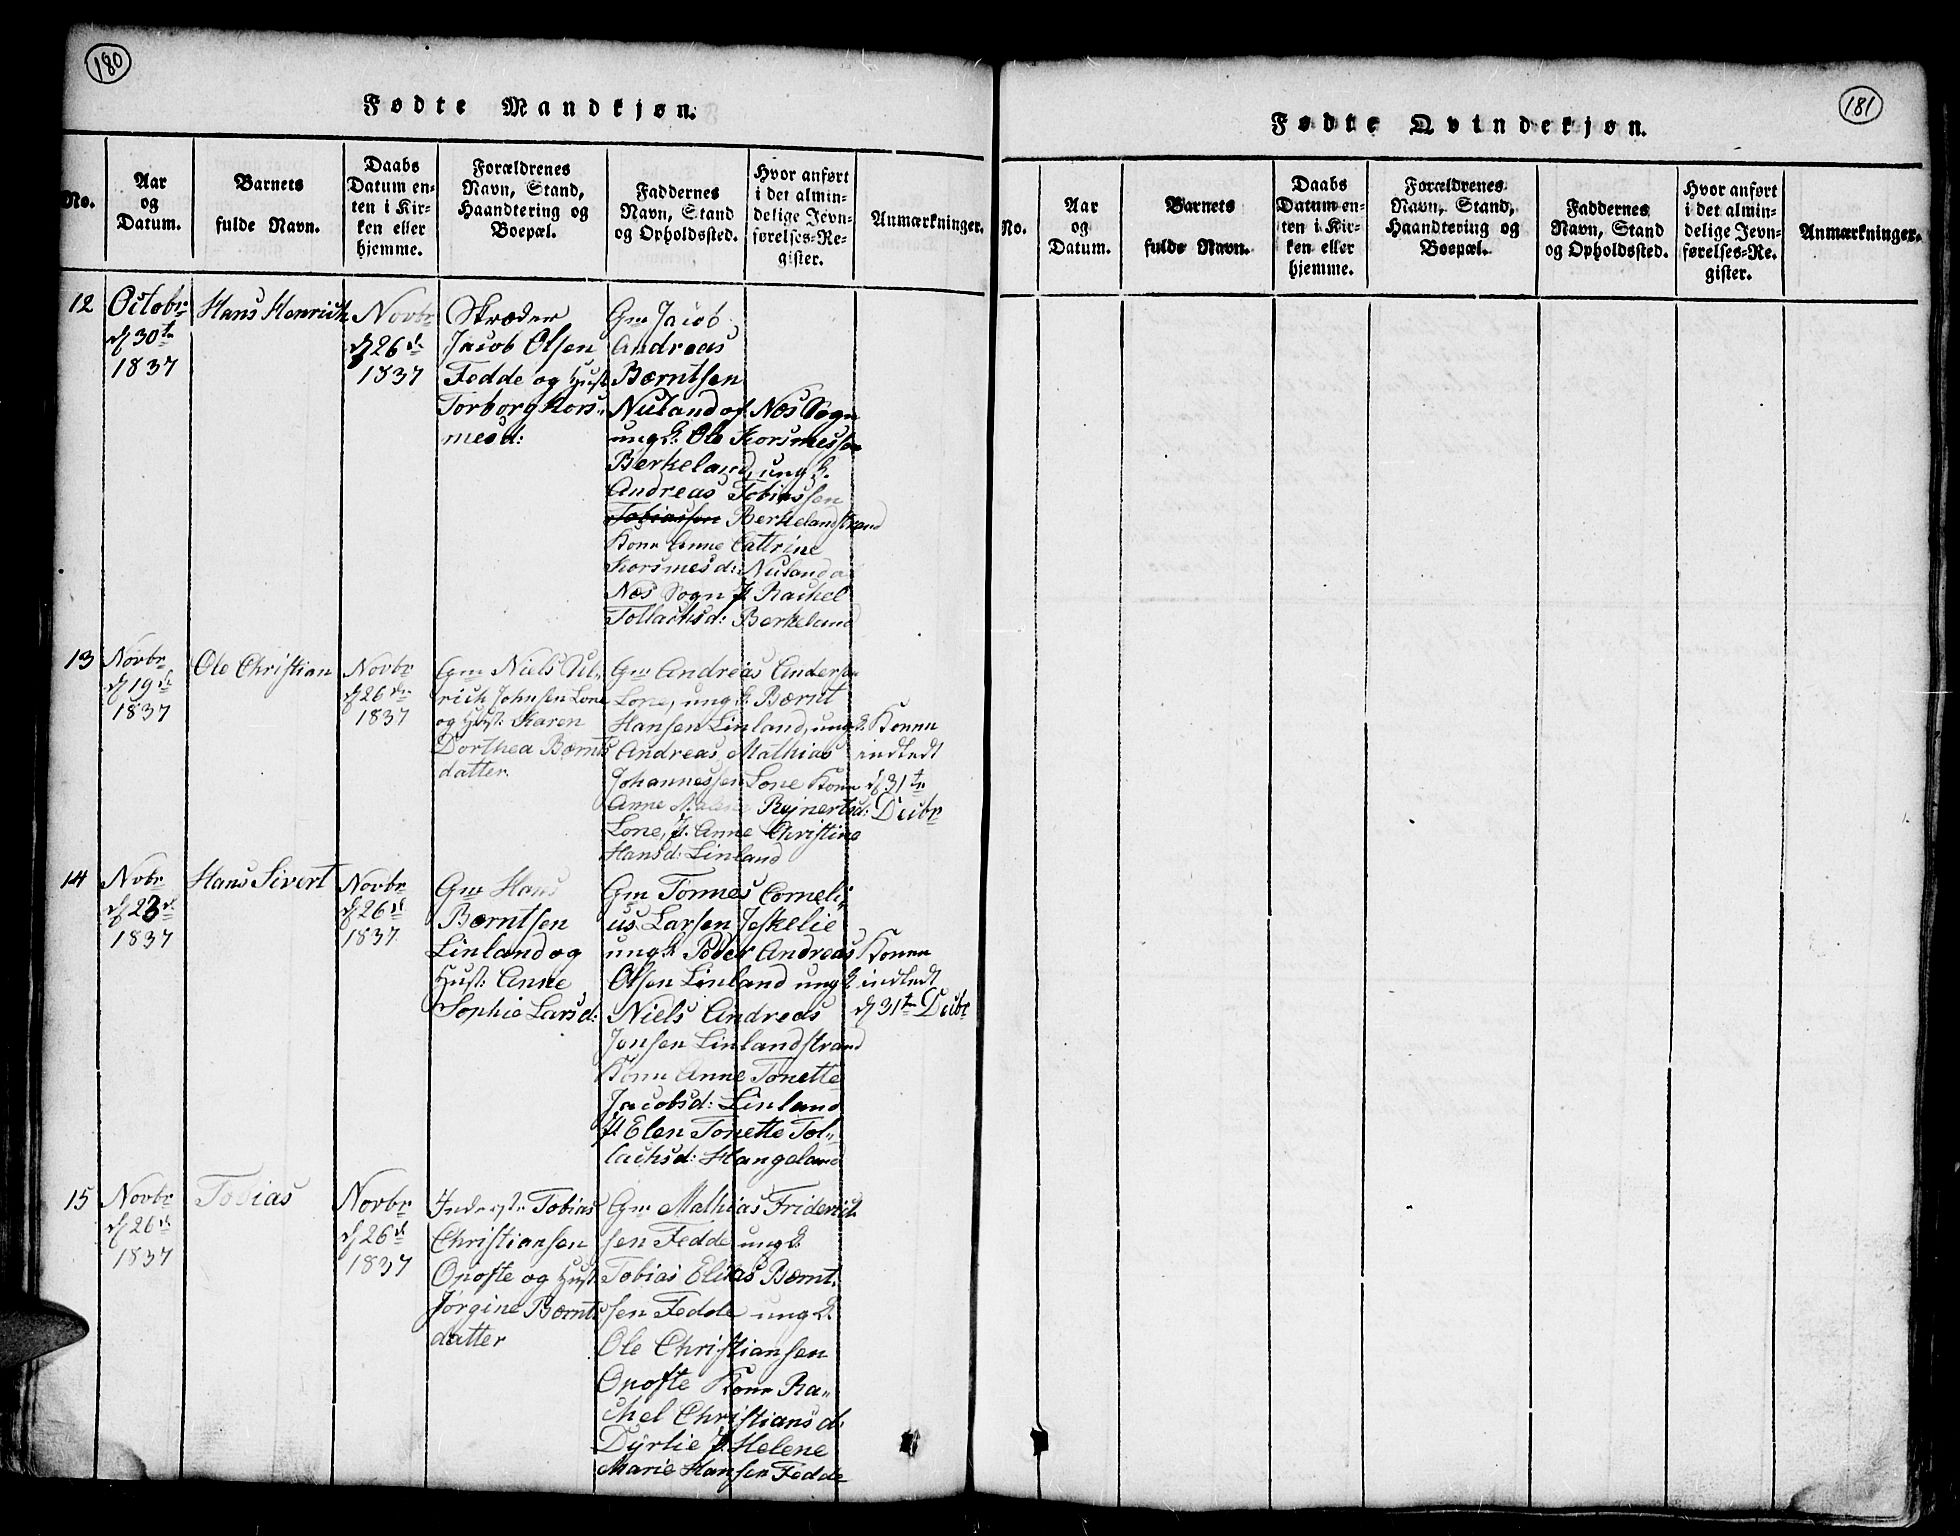 180
Fødte Mandkjøn.
No.
Aar
og
Datum.
Barnets
fulde Navn.
Daabs
Datum en-
ten i Kir-
ken eller
hjemme.
Forældrenes
Navn, Stand,
Haandtering og
Boepæl.
Faddernes
Navn, Stand
og Opholdssted.
Hvor anført
i det almin-
delige Jevn-
førelses-Re-
gister.
Anmærkninger.
12
Octobr
d 30te
1837
Hans Henrich
Novbr
d 26de
1837
Skræder
Jacob Olsen
Fedde og Hust
Torborg Kors-
mesd:
Gm Jacob
Andreas
Bærntsen
Nuland af Nes Sogn
ungk: Ole Korsmessen
Berkeland, ungk.
Andreas Tobiassen
Tobiassen Berkelandstrand
Kone Anne Cattrine
Korsmesd: Nuland af
Nes Sogn P. Rachel
Tollachsd: Berkeland
13
Novbr
d 19de
1837
Ole Christian
Novbr
d 26de
1837
Gm Niels Ul-
rich Johnsen Lone
og Hust: Karen
Dorthea Bærnts
datter.
Gm Andreas Andersen
Lone, ungk: Bærnt
Hansen Linland, ungk.
Andreas Mathias
Johannessen Lone Kone
Anne Malene Rejnertsd:
Lone, P. Anne Christine
Hansd: Linland
Konen
indledt
d 31te
Decbr
14
Novbr
d 23de
1837
Hans Sivert
Novbr
d 26de
1837
Gm Hans
Bærntsen
Linland og
Hust: Anne
Sophie Larsd:
Gm Tønnes Corneli-
us Larsen Jeskelie
ungk Peder Andreas
Olsen Linland ungk
Niels Andreas
Jensen Linlandstrand
Kone Anne Tonette
Jacobsd: Linland
P Elen Tonette Tol-
lachsd: Hangeland
Konen
indledt
d 31te Decbr
15
Novbr
d 26de
1837
Tobias
Novbr
d 26de
1837
Inderste Tobias
Christiansen
Opofte og Hust
Jørgine Bærnts
datter
Gm Mathias Friderich
sen Fedde ungk.
Tobias Elias Bærnt-
sen Fedde ungk.
Ole Christiansen
Opofte Kone Ra-
chel Christiansd:
Dyrlie P. Helene
Marie Hansen Fedde
181
Fødte Qvindekjøn.
No.
Aar
og
Datum.
Barnets
fulde Navn.
Daabs
Datum en-
ten i Kir-
ken eller
hjemme.
Forældrenes
Navn, Stand,
Haandtering og
Boepæl.
Faddernes
Navn, Stand
og Opholdssted.
Hvor anført
i det almin-
delige Jevn-
førelses-Re-
gister.
Anmærkninger.